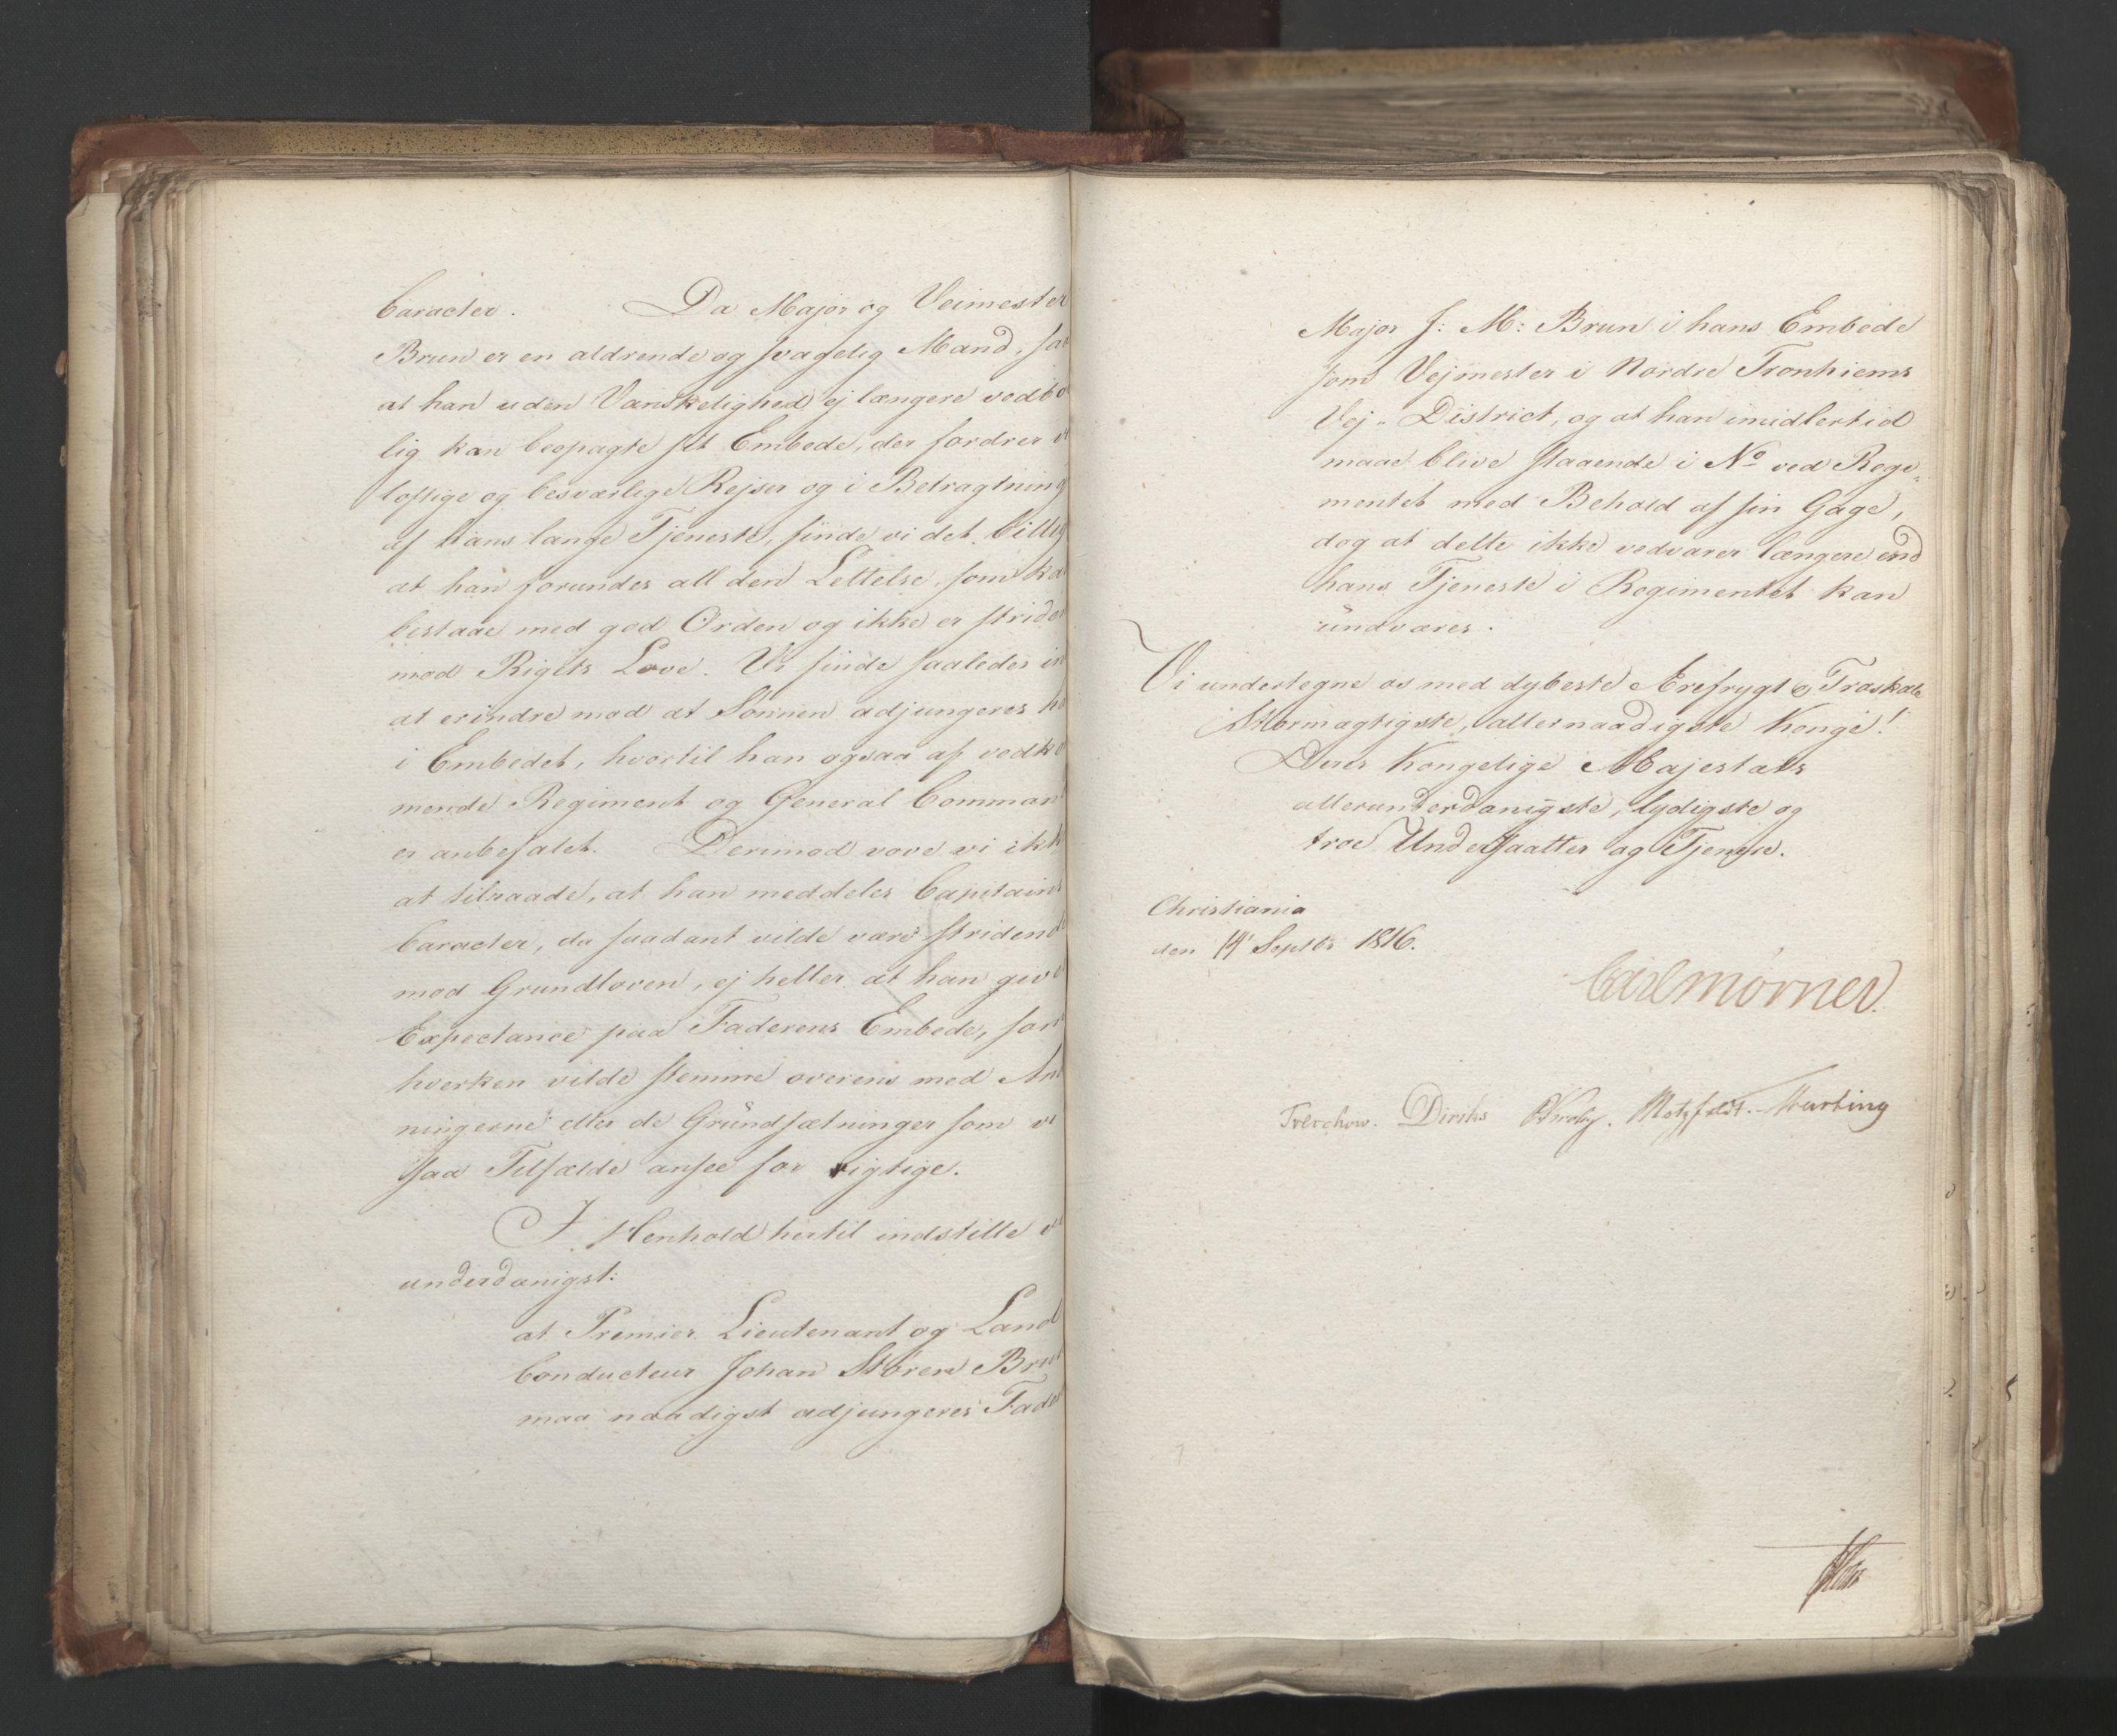 Caracter. Da Major og Veimester
Brun er en aldrende og svagelig Mand, saa
at han uden Vanskelighed ej længere vedbø
lig kan besøgte sit Embede, der fordrer
og besværlige Rejser og i Betragtning
af hans lange Tjeneste, finde vi det billig
at han forundes all den Lettelse, som ka
bestaae med god Orden og ikke er stride
mod Rigets Love. Vi finde saaledes in
at erindre mod at Sønnen adjungeres ha
i Embedet, hvortil han ogsaa af vedko
mende Regiment og General Comman
er anbefalet. Derimod vove vi ikk
at tilraade, at han meddeles Capitains
Caracter, da saadant vilde være stridend
mod Grundloven, ej heller at han give
Expectance paa Faderens Embede, som
hverken vilde stemme overens med An
ningerne eller de Grundsætninger som vi
saa Tilfælde ansee for rigtige.
I Henhold hertil indstille vi
underdanigst:
at Premier Lieutenant og Land
Conducteur Johan Støren Brun
maa naadigst adjungeres Fade
Major J: M: Brun i hans Embede
som Vejmester i Nordre Tronhiems
Vej-District, og at han imidlertid
maae blive staaende i No ved Regi-
mentet med Behold af sin Gage,
dog at dette ikke vedvarer længere end
hans Tjeneste i Regimentet kan
undværes.
Vi undertegne os med dybeste Ærefrygt og Troskab
Stormægtigste, allernaadigste Konge!
Deres Kongelige Majestæts
allerunderdanigste, lydigste og
troe Undersaatter og Tjenere.
Christiania
den 19 Septbr 1816.
Carl Mörner.
Treschow. Diriks Krohg. Motzfeldt. Hurting